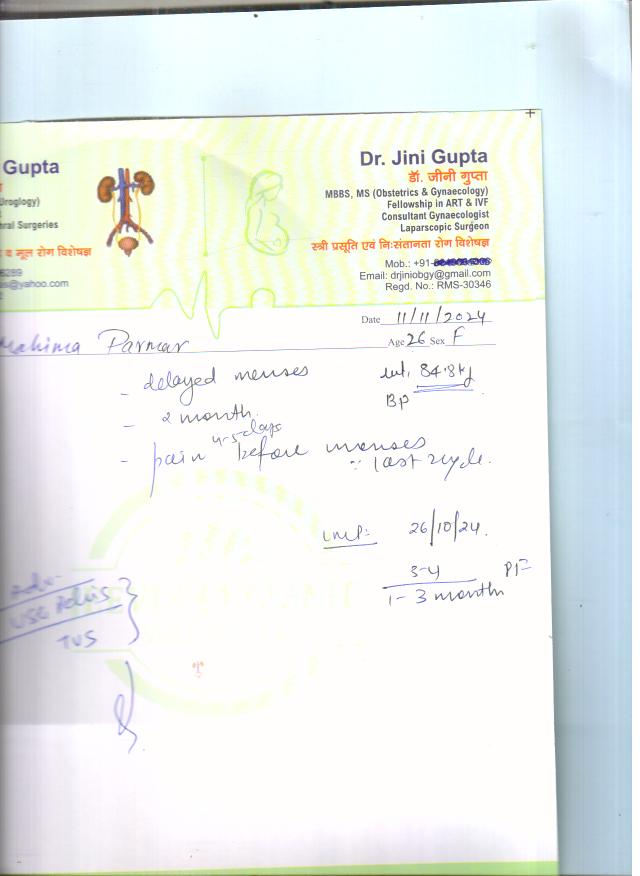 Gupta
Dr. Jini Gupta
डॉ. जीनी गुप्ता
Urology)
MBBS, MS (Obstetrics & Gynaecology)
Fellowship in ART & IVF
Consultant Gynaecologist
Laparscopic Surgeon
ral Surgeries
व मूल रोग विशेषज्ञ
स्त्री प्रसूति एवं निःसंतानता रोग विशेषज्ञ
6289
Mob.: +91-
s@yahoo.com
Email: drjiniobgy@gmail.com
Regd. No.: RMS-30346
Date 11/11/2024
Mahima Parmar
Age 26 Sex F
- delayed menses
wt. 84.8kg
BP
- 2 month.
4-5 days
- pain before menses
last cycle.
LMP: 26/10/24.
3-4
1-3 month
Adv-
USG Pelvis
TVS